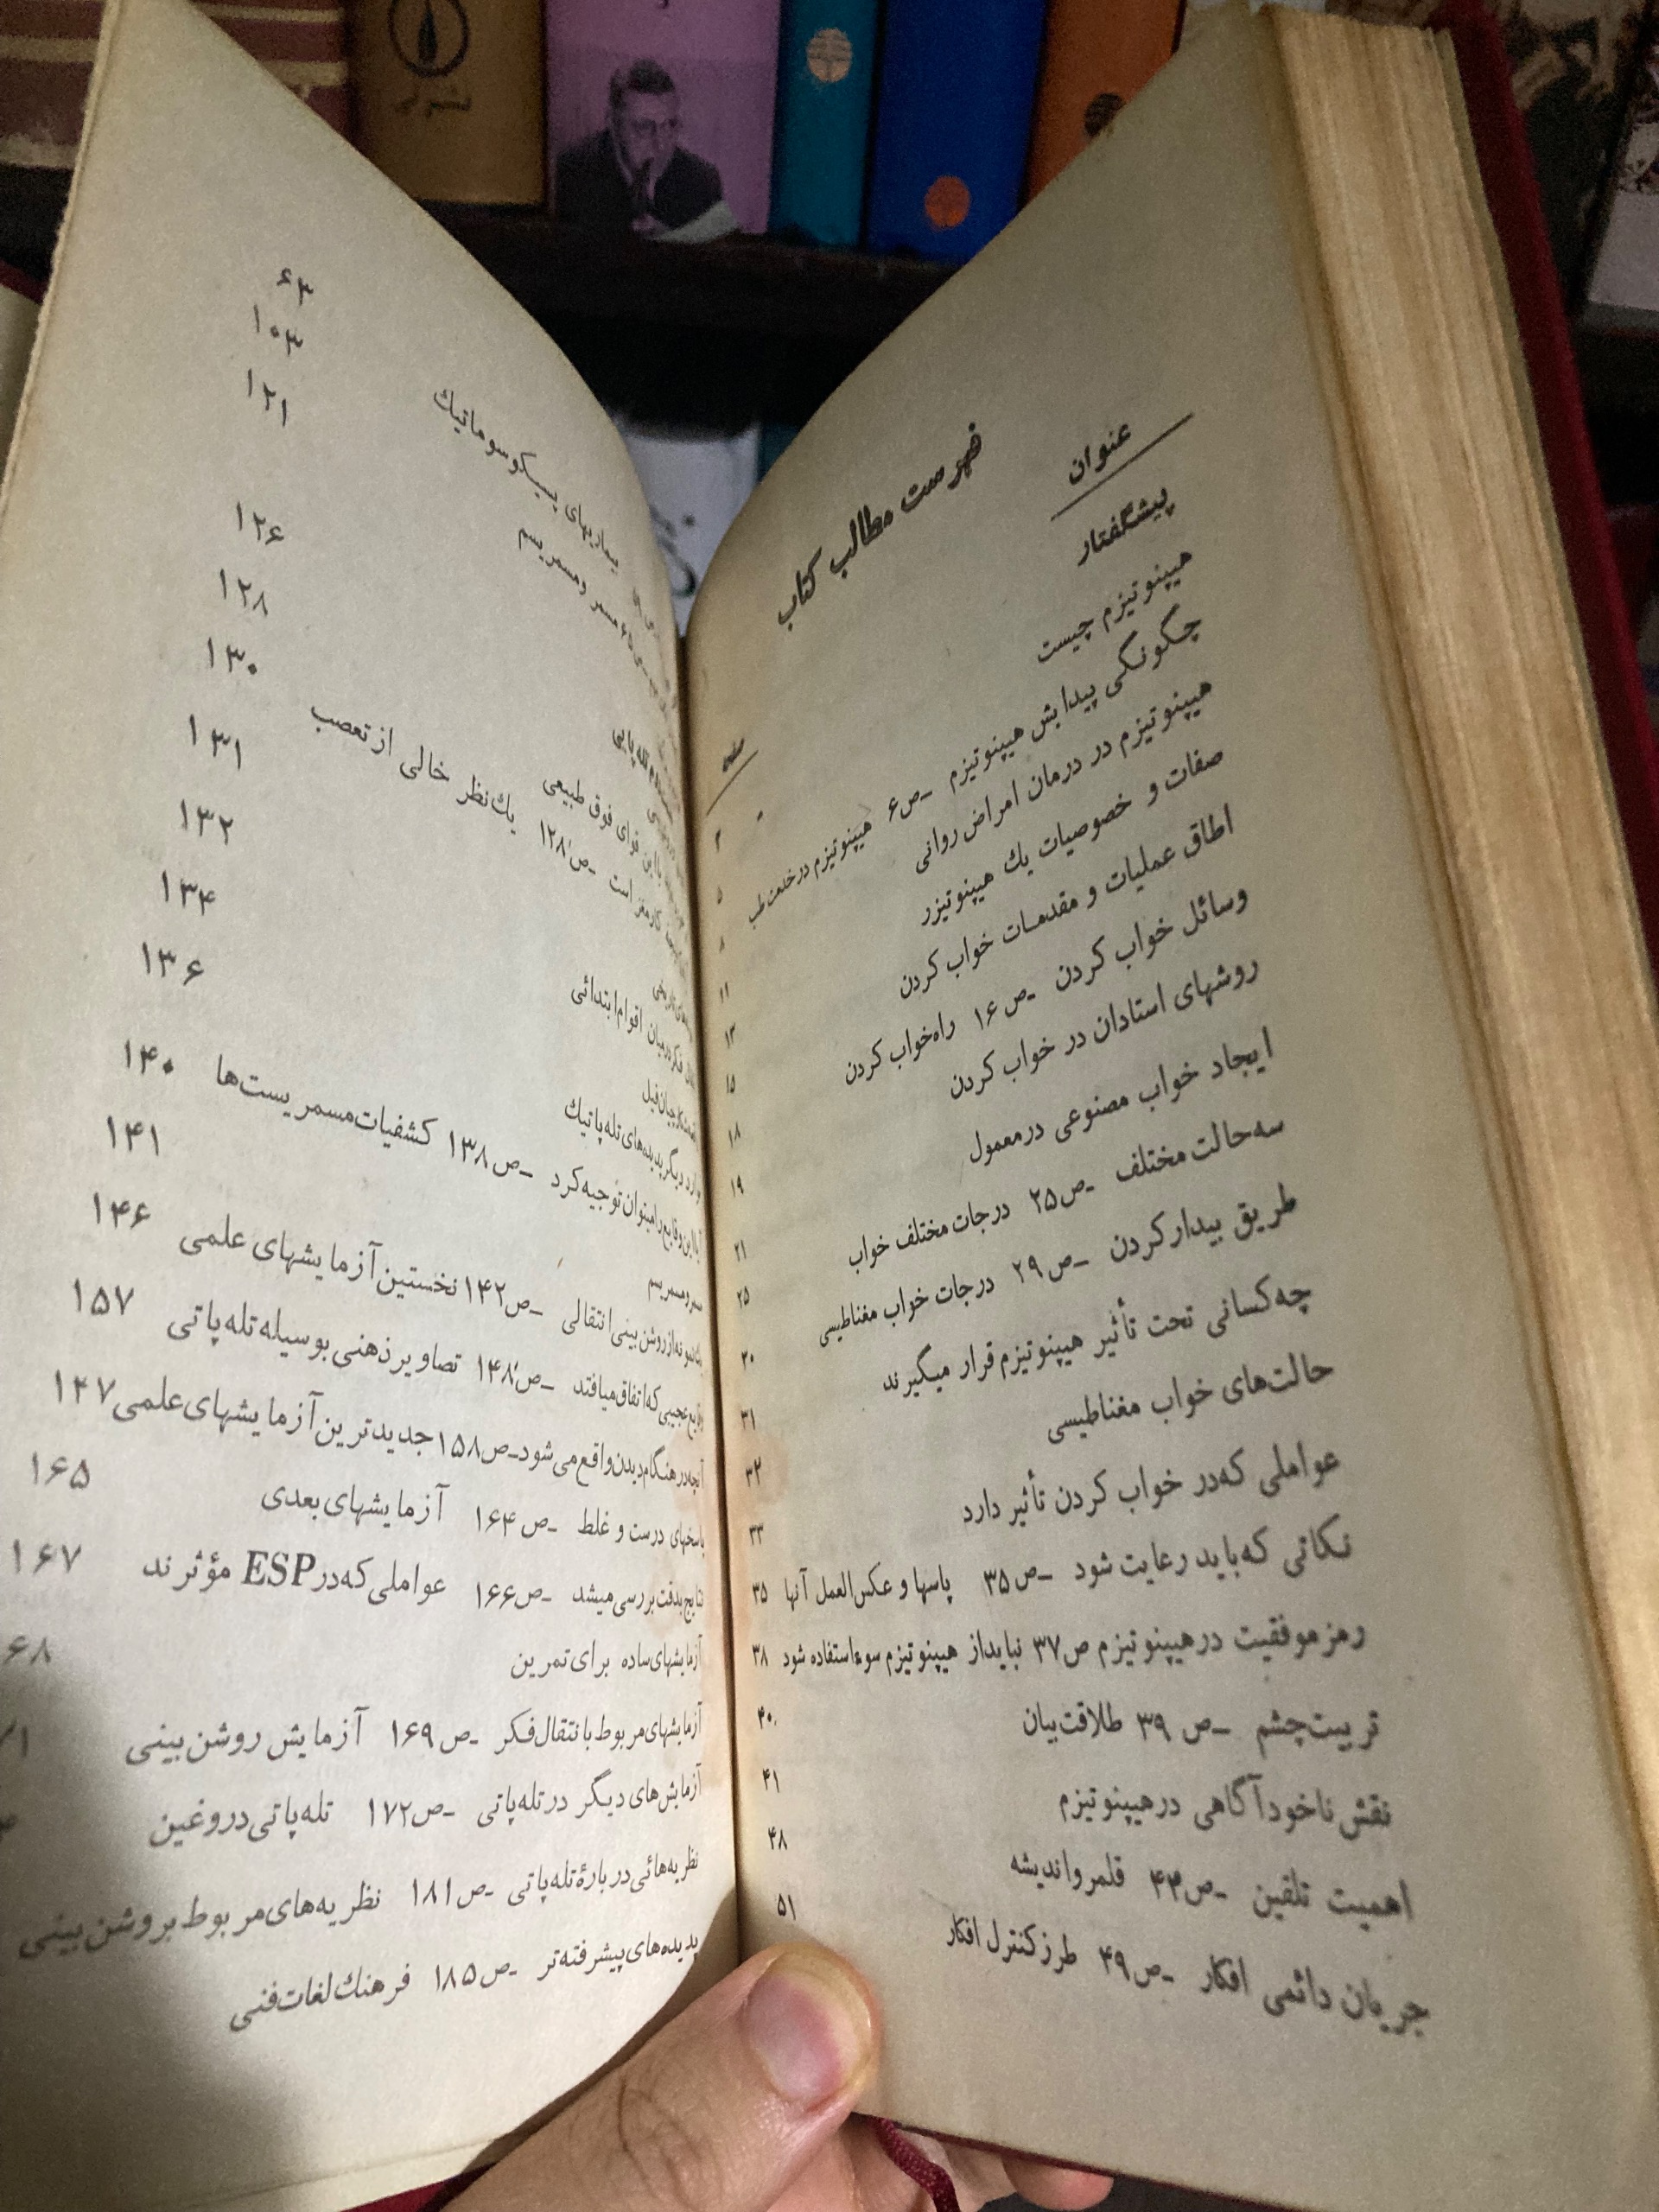 فهرست مطالب کتاب
عنوان
صفحه
پیشگفتار
هیپنوتیزم چیست ۳
چگونگی پیدایش هیپنوتیزم -ص۶ هیپنوتیزم در خدمت طب ۵
هیپنوتیزم در درمان امراض روانی ۸
صفات و خصوصیات یك هیپنوتیزر ۱۱
اطاق عملیات و مقدمات خواب کردن ۱۳
وسائل خواب کردن -ص۱۶ راه خواب کردن ۱۵
روشهای استادان در خواب کردن ۱۸
ایجاد خواب مصنوعی در معمول ۱۹
سه حالت مختلف -ص۲۵ درجات مختلف خواب ۲۱
طریق بیدار کردن -ص۲۹ درجات خواب مغناطیسی ۲۵
چه کسانی تحت تأثیر هیپنوتیزم قرار میگیرند ۳۰
حالت‌های خواب مغناطیسی ۳۱
عواملی که در خواب کردن تأثیر دارد ۳۲
۳۳
نکاتی که باید رعایت شود -ص۳۵ پاسها و عکس‌العمل آنها ۳۵
رمز موفقیت در هیپنوتیزم ص۳۷ نباید از هیپنوتیزم سوء استفاده شود ۳۸
تربیت چشم -ص ۳۹ طلاقت بیان ۴۰
نقش ناخودآگاهی در هیپنوتیزم ۴۱
اهمیت تلقین -ص۴۳ قلمرو اندیشه ۴۸
جریان دائمی افکار -ص۴۹ طرز کنترل افکار ۵۱
۶۳
۱۰۳
بیماریهای پسیکوسوماتیك ۱۲۱
مسمر و مسمریسم
۱۲۶
۱۲۸
با این قوای فوق طبیعی ۱۳۰
کار مغز است -ص۱۲۸ یك نظر خالی از تعصب ۱۳۱
۱۳۲
فکر در میان اقوام ابتدائی ۱۳۴
۱۳۶
دیگر پدیده‌های تله‌پاتیك
آیا این وقایع را میتوان توجیه کرد -ص۱۳۸ کشفیات مسمریست‌ها ۱۴۰
۱۴۱
نمونه از روشن بینی انتقالی -ص۱۴۲ نخستین آزمایشهای علمی ۱۴۶
وقایع عجیبی که اتفاق میافتد -ص۱۴۸ تصاویر ذهنی بوسیله تله‌پاتی ۱۵۷
آنچه در هنگام دیدن واقع می‌شود -ص۱۵۸ جدیدترین آزمایشهای علمی ۱۴۷
پاسخهای درست و غلط -ص۱۶۴ آزمایشهای بعدی ۱۶۵
نتایج بدقت بررسی میشد -ص۱۶۶ عواملی که در ESP مؤثرند ۱۶۷
آزمایشهای ساده برای تمرین ۶۸
آزمایشهای مربوط با انتقال فکر -ص۱۶۹ آزمایش روشن بینی
آزمایش‌های دیگر در تله‌پاتی -ص۱۷۲ تله‌پاتی دروغین
نظریه‌هائی دربارهٔ تله‌پاتی -ص۱۸۱ نظریه‌های مربوط بروشن بینی
پدیده‌های پیشرفته‌تر -ص۱۸۵ فرهنك لغات فنی